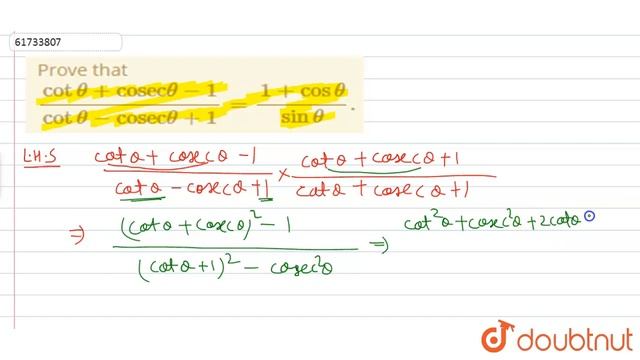 61733807
Prove that
(cot θ + cosecθ − 1)/(cot θ − cosecθ + 1) = (1 + cos θ)/(sin θ).
L.H.S (cotθ + cosecθ −1)/(cotθ − cosecθ +1) × (cotθ + cosecθ +1)/(cotθ + cosecθ +1)
⇒ ((cotθ + cosecθ)² − 1)/((cotθ +1)² − cosec²θ) ⇒ cot²θ + cosec²θ + 2cotθ
doubtnut